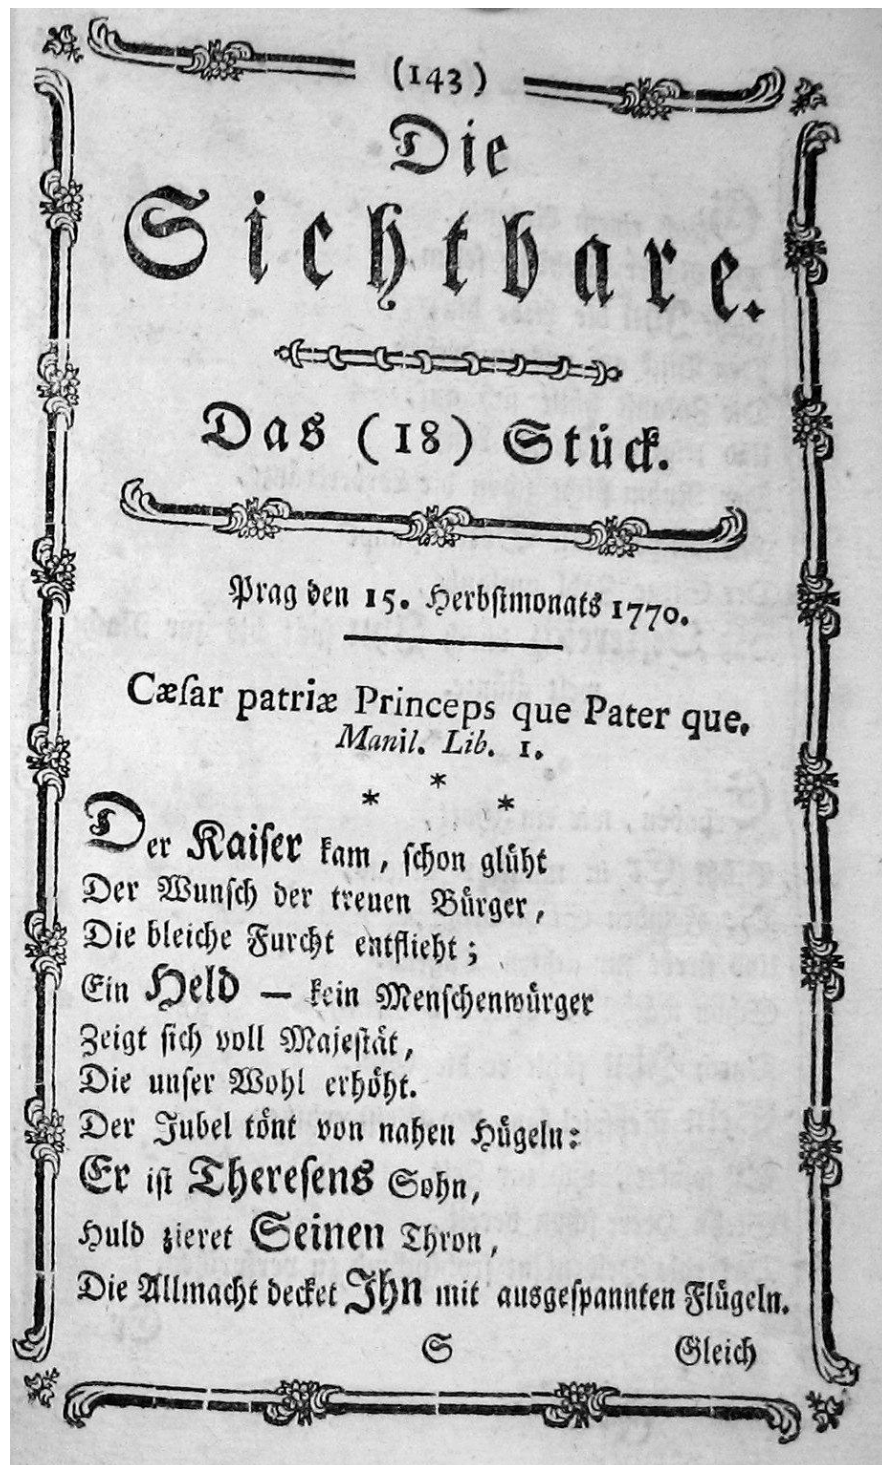 (143)
Die
Sichtbare.
Das (18) Stück.
Prag den 15. Herbſtmonats 1770.
Cæſar patriæ Princeps que Pater que.
Manil. Lib. 1.
* * *
Der Kaiſer kam, ſchon glüht
Der Wunſch der treuen Bürger,
Die bleiche Furcht entflieht;
Ein Held — kein Menſchenwürger
Zeigt ſich voll Majeſtät,
Die unſer Wohl erhöht.
Der Jubel tönt von nahen Hügeln:
Er iſt Thereſens Sohn,
Huld zieret Seinen Thron,
Die Allmacht decket Ihn mit ausgeſpannten Flügeln.
S Gleich